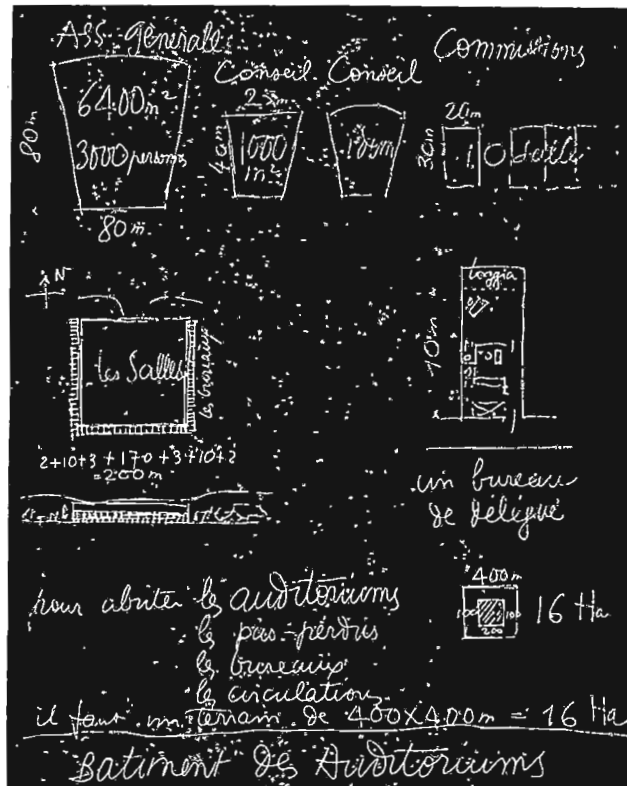 Ass Générale
Conseil Conseil
Commissions
6400 m²
3000 personnes
80m
80m
25m
40m
1000 m²
20m
30m
10 salles
N
les Salles
les bureaux
2+10+3+170+3+10+2
=200m
loggia
10m
un bureau
de délégué
400m
100
100
200
16 Ha
pour abriter les auditoriums
les pas-perdus
les bureaux
les circulations
il faut un terrain de 400x400m = 16 Ha
Batiment des Auditoriums